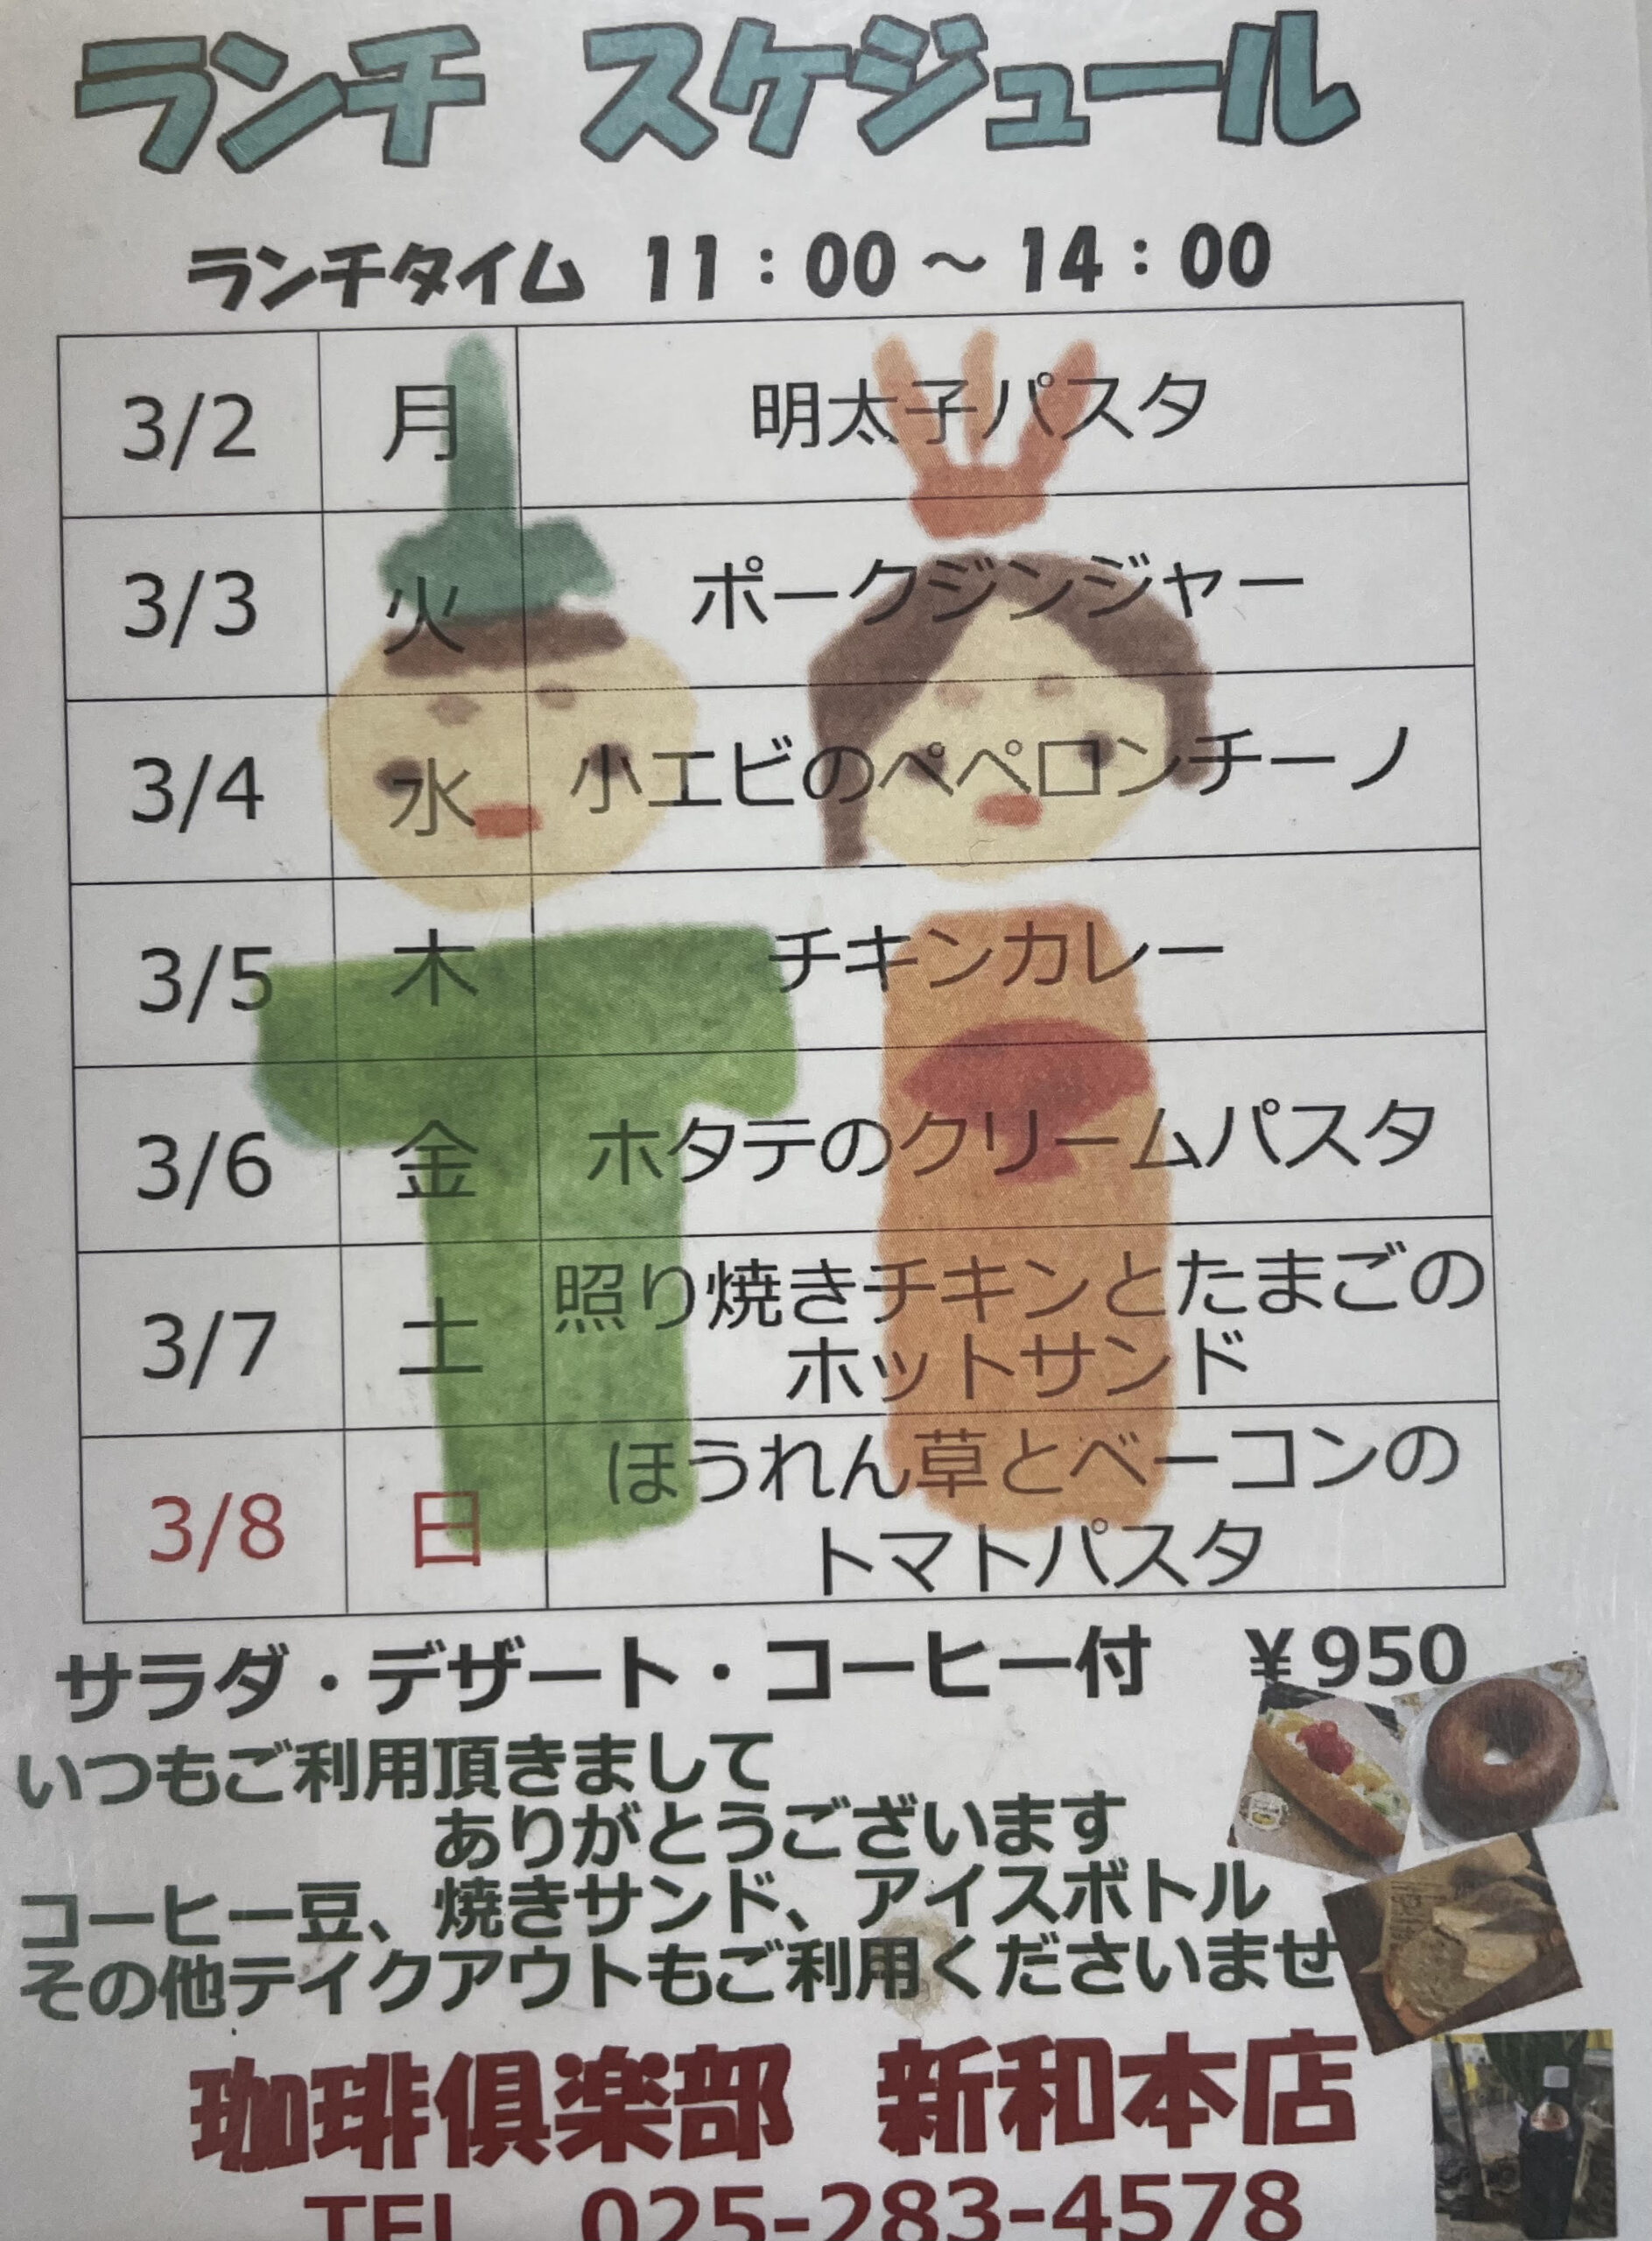 ランチ スケジュール
ランチタイム 11：00～14：00
3/2 月 明太子パスタ
3/3 火 ポークジンジャー
3/4 水 小エビのペペロンチーノ
3/5 木 チキンカレー
3/6 金 ホタテのクリームパスタ
3/7 土 照り焼きチキンとたまごの
ホットサンド
3/8 日 ほうれん草とベーコンの
トマトパスタ
サラダ・デザート・コーヒー付 ￥950
いつもご利用頂きまして
ありがとうございます
コーヒー豆、焼きサンド、アイスボトル
その他テイクアウトもご利用くださいませ
珈琲倶楽部 新和本店
TEL 025-283-4578